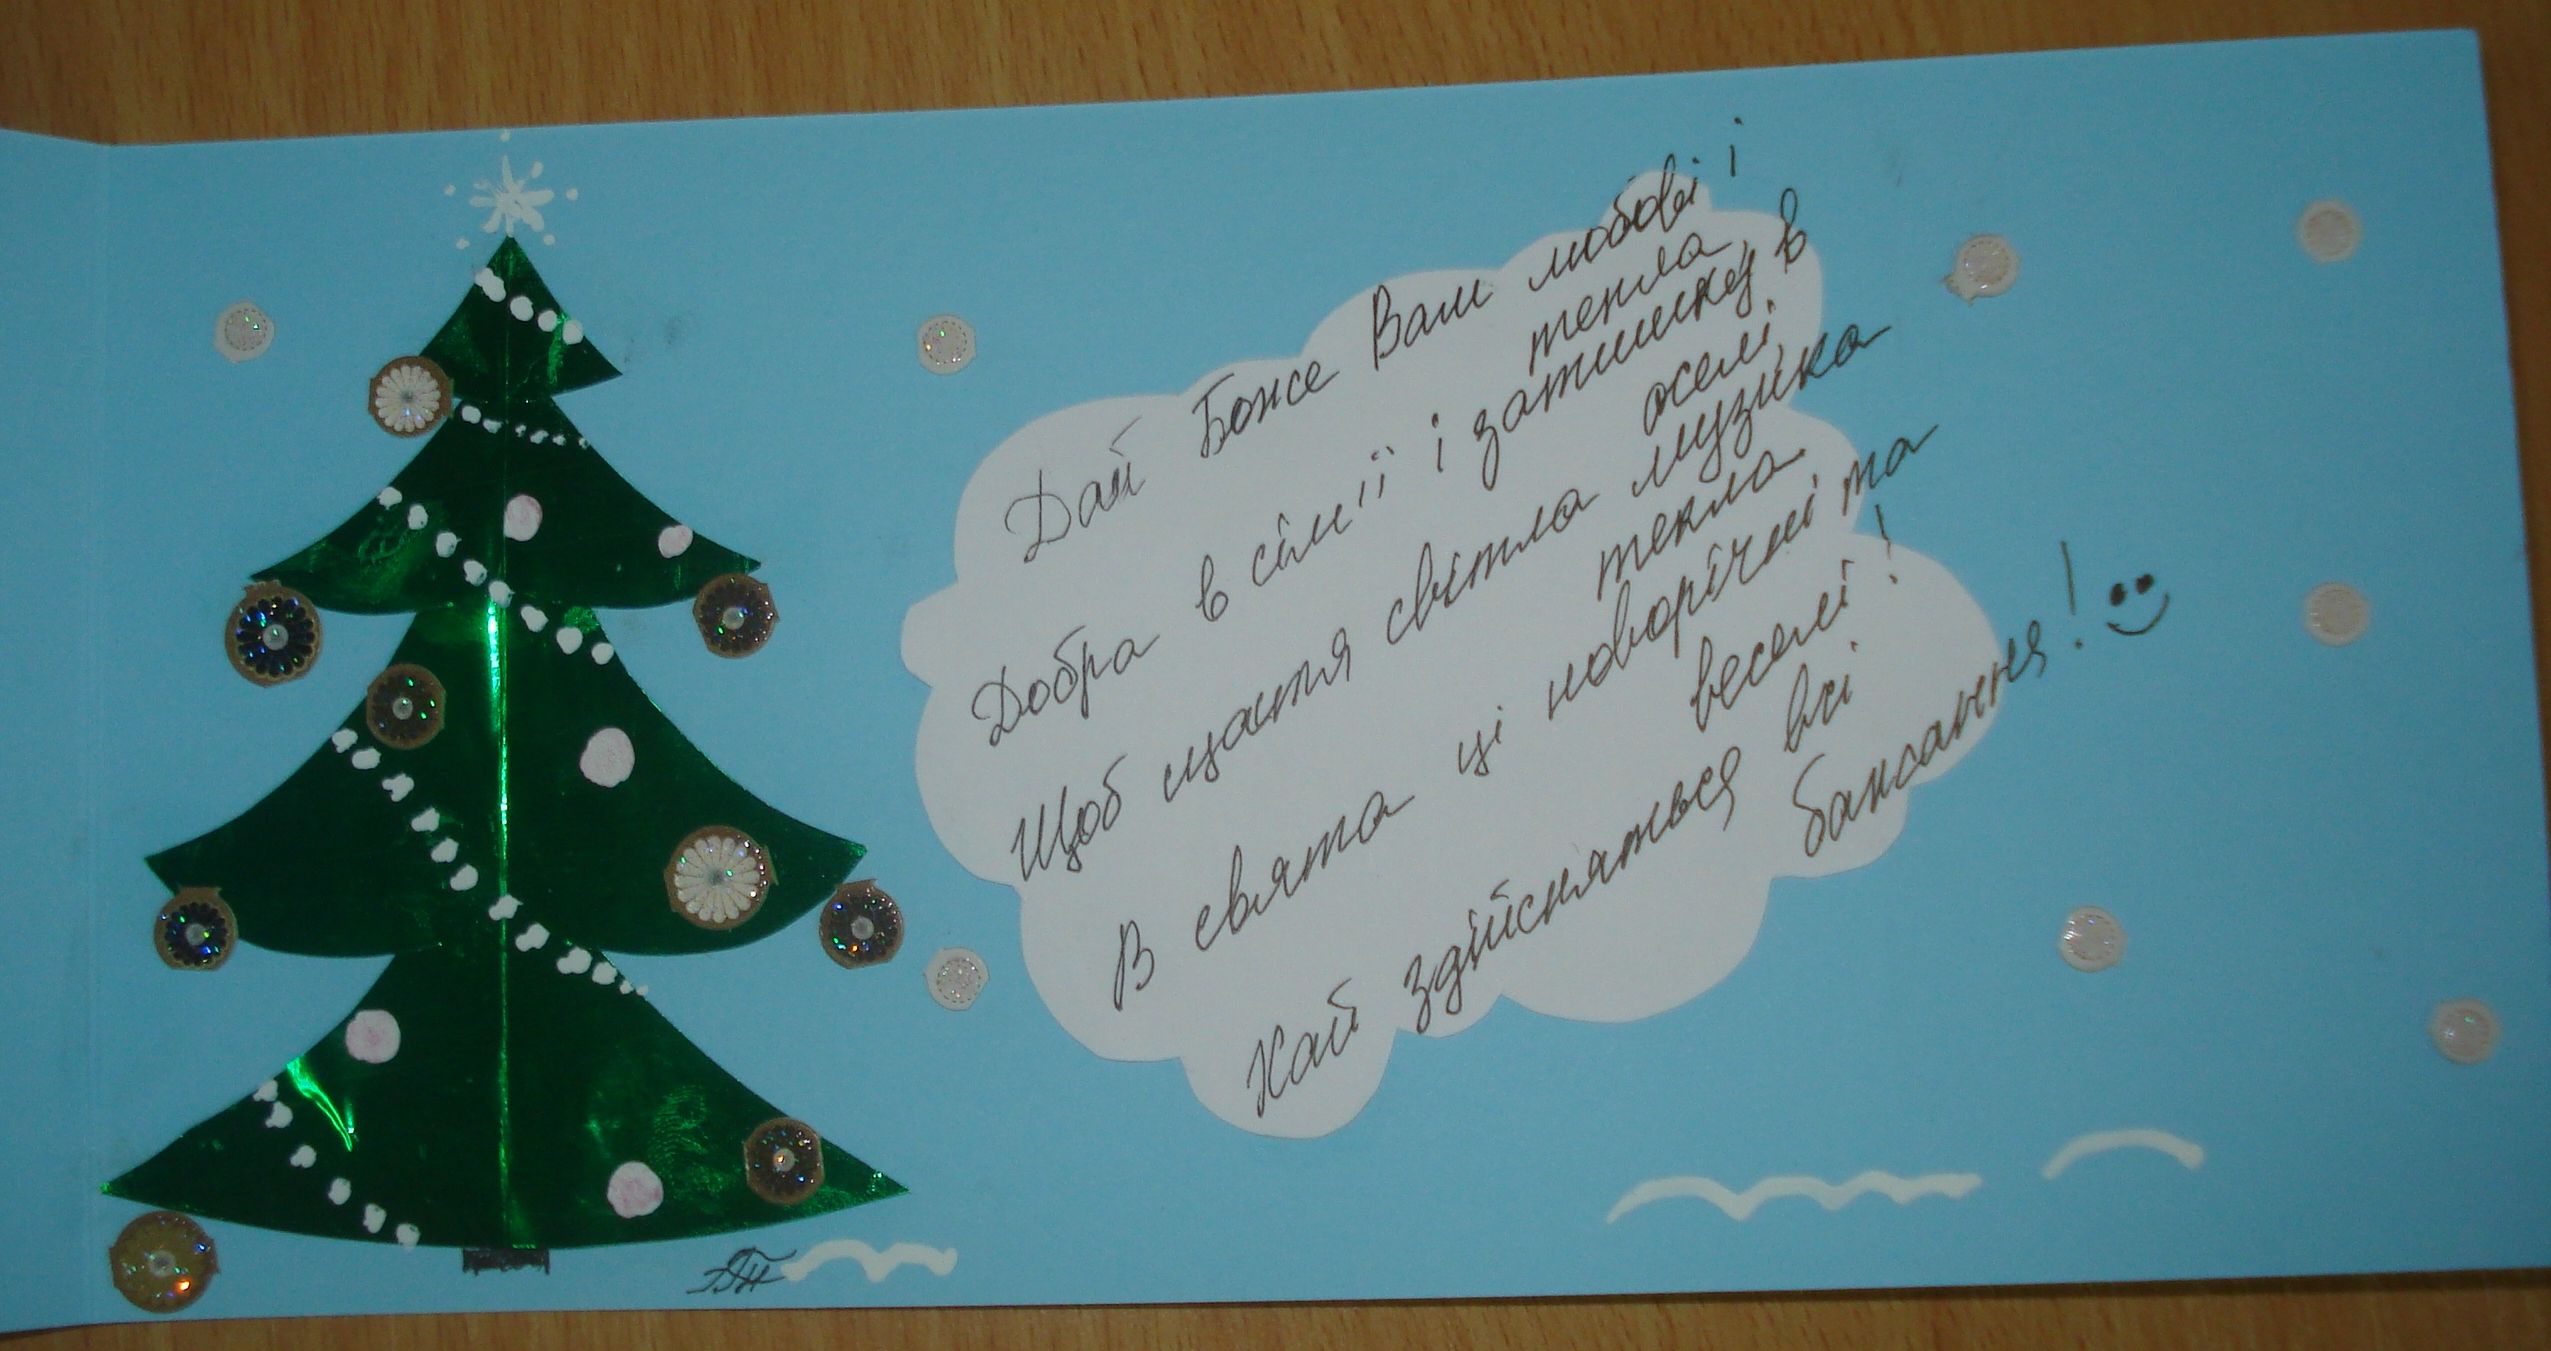 Дай Боже Вам любові і
тепла,
Добра в сім'ї і затишку в
оселі.
Щоб щастя світла музика
текла
В свята ці новорічні та
веселі!
Хай здійсняться всі
бажання!